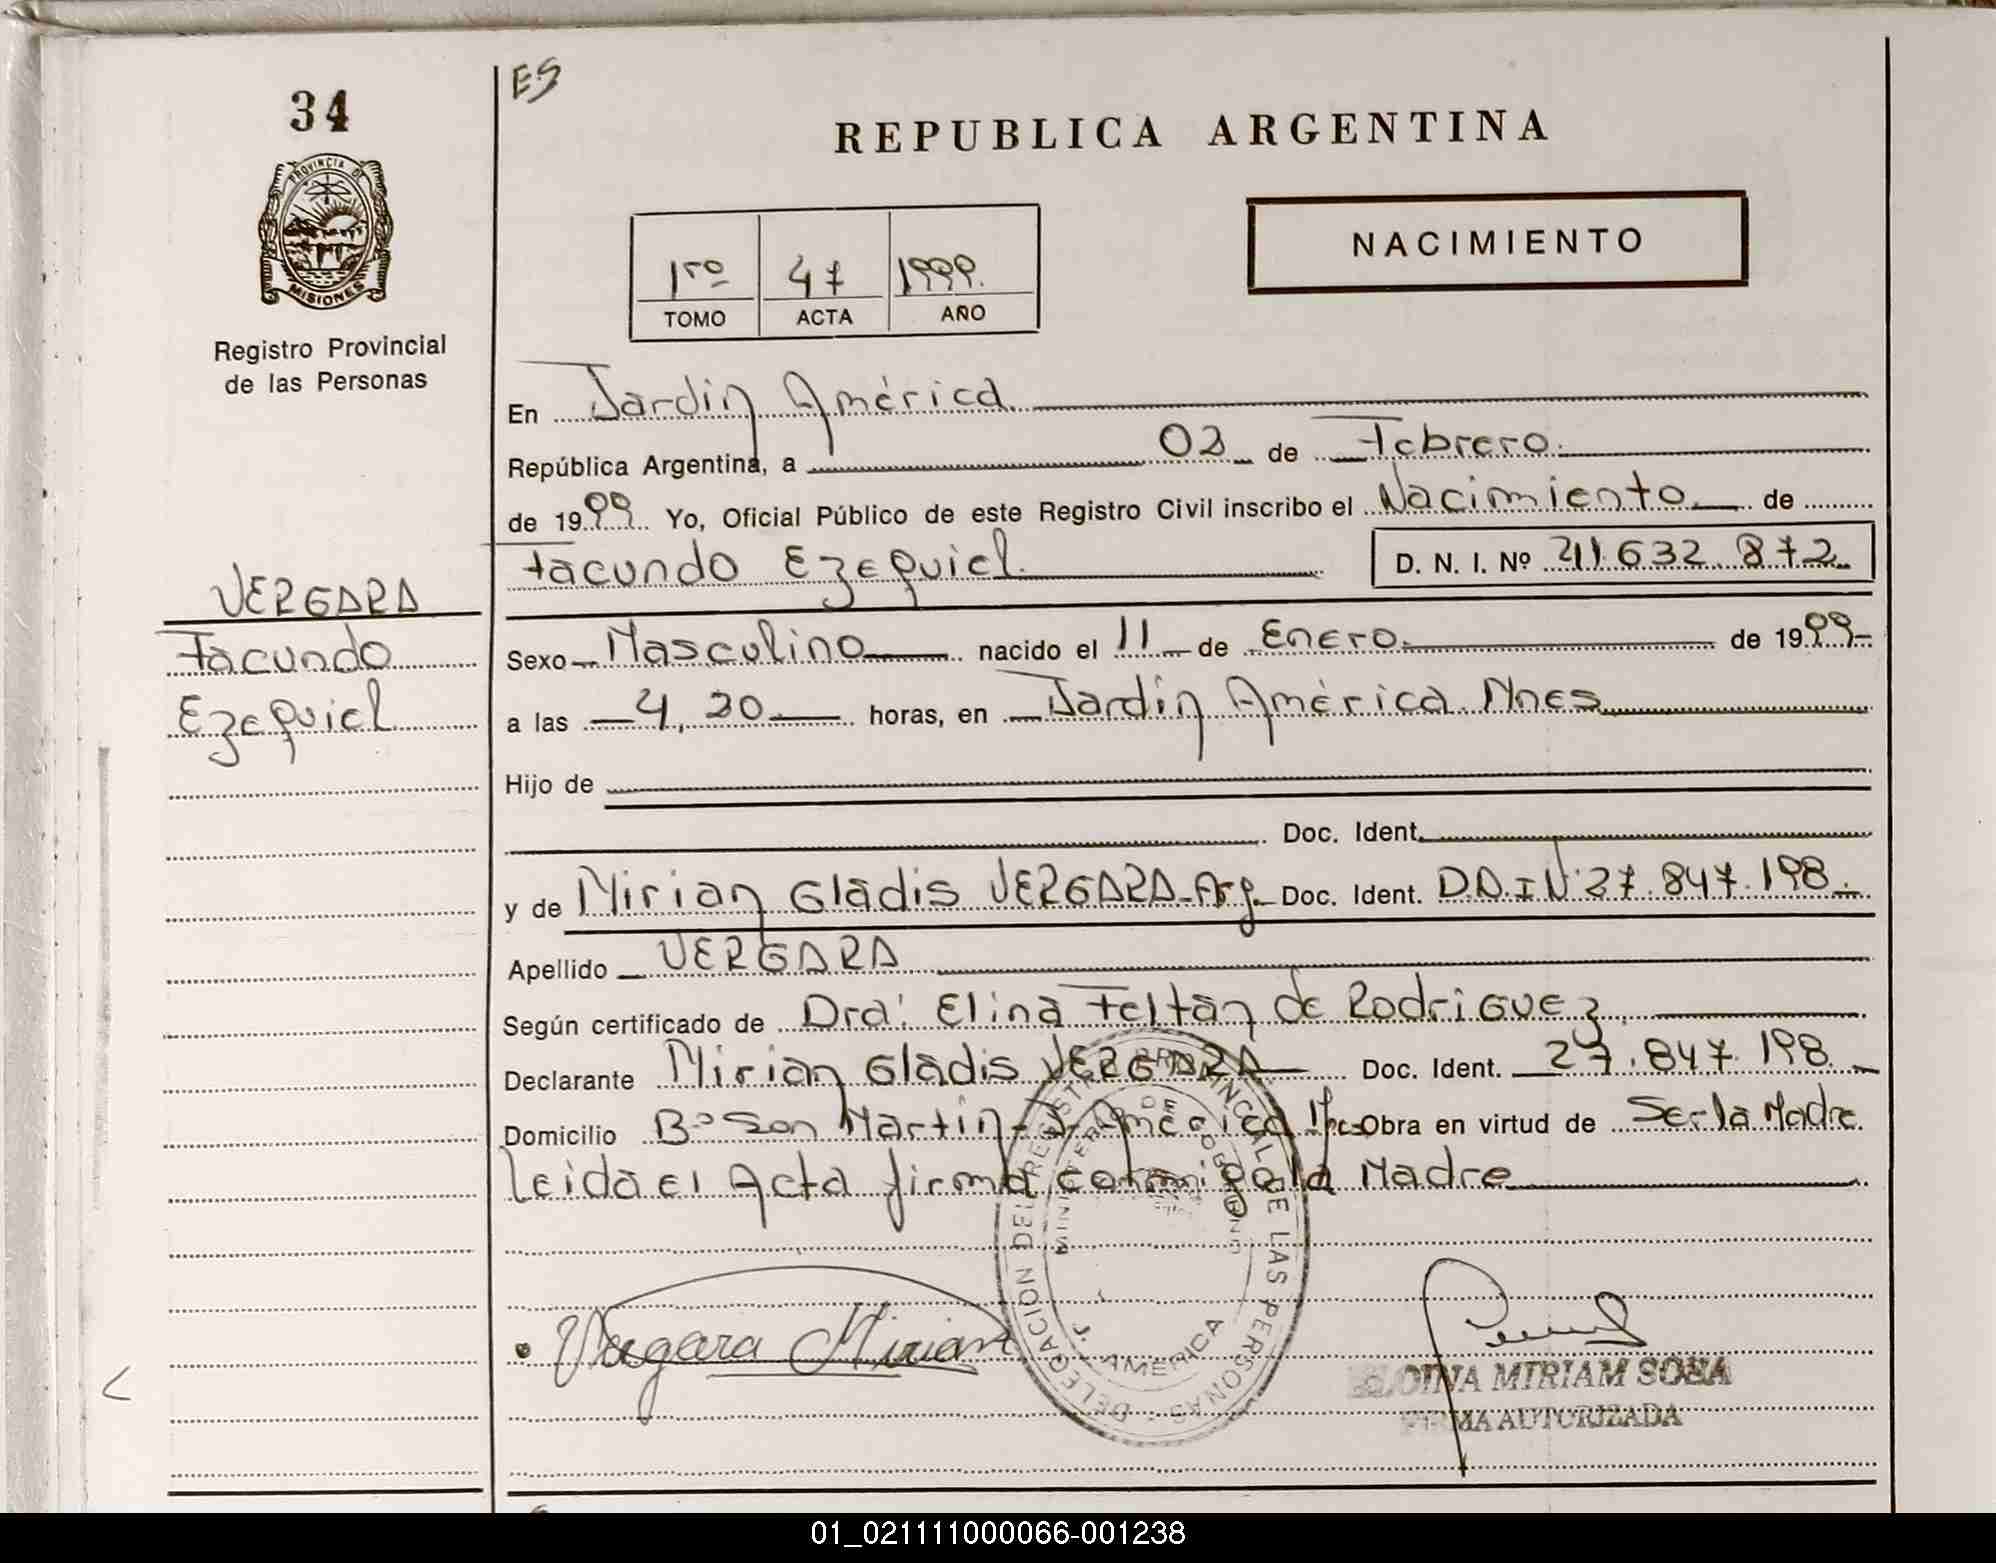 34
ES
REPUBLICA ARGENTINA
PROVINCIA DE
MISIONES
Registro Provincial
de las Personas
NACIMIENTO
1ro 47 1999.
TOMO ACTA AÑO
En Jardin América
República Argentina, a 02 de Febrero.
de 1999 Yo, Oficial Público de este Registro Civil inscribo el Nacimiento de
Facundo Ezequiel. D. N. I. Nº 41.632.872
VERGARA
Facundo
Ezequiel
Sexo Masculino nacido el 11 de Enero. de 1999
a las 4,20 horas, en Jardin América Mnes
Hijo de
Doc. Ident.
y de Mirian Gladis VERGARA-Arg. Doc. Ident. D.N.I Nº 27.847.198.
Apellido VERGARA
Según certificado de Dra: Elina Feltan de Rodriguez.
Declarante Mirian Gladis VERGARA Doc. Ident. 27.847.198.
Domicilio Bº San Martin-J. América Obra en virtud de Ser la Madre
Leida el Acta firma conmigo la Madre
DELEGACION DEL REGISTRO PROVINCIAL DE LAS PERSONAS
J. AMERICA
Vergara Mirian
MIRIAM SOSA
FIRMA AUTORIZADA
01_021111000066-001238